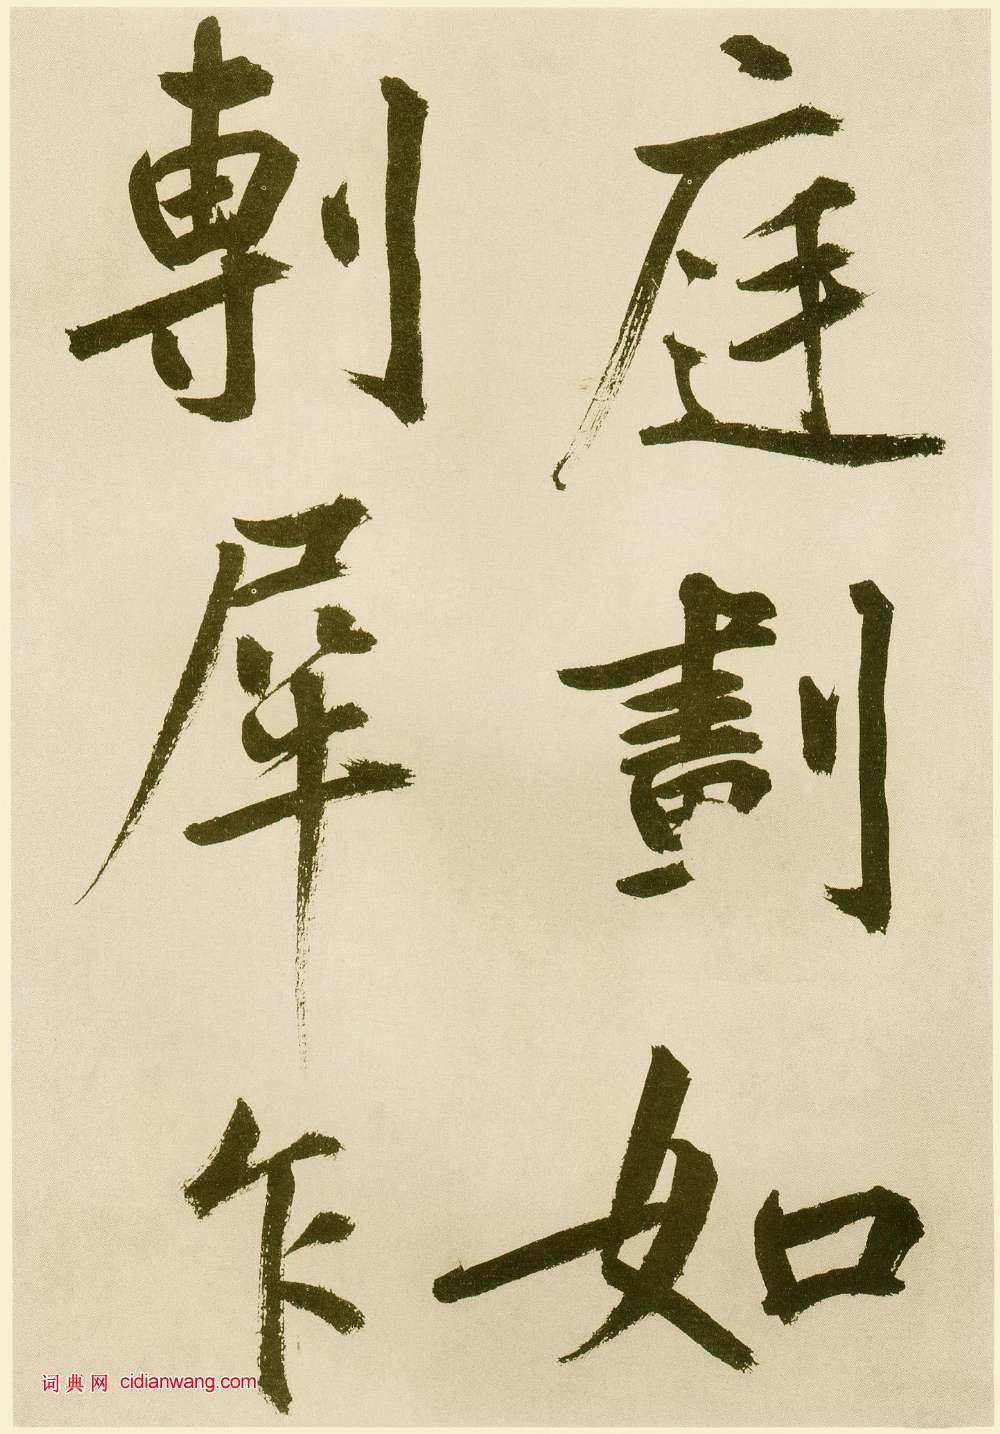 庭劃如
剸犀乍
词典网 cidianwang.com